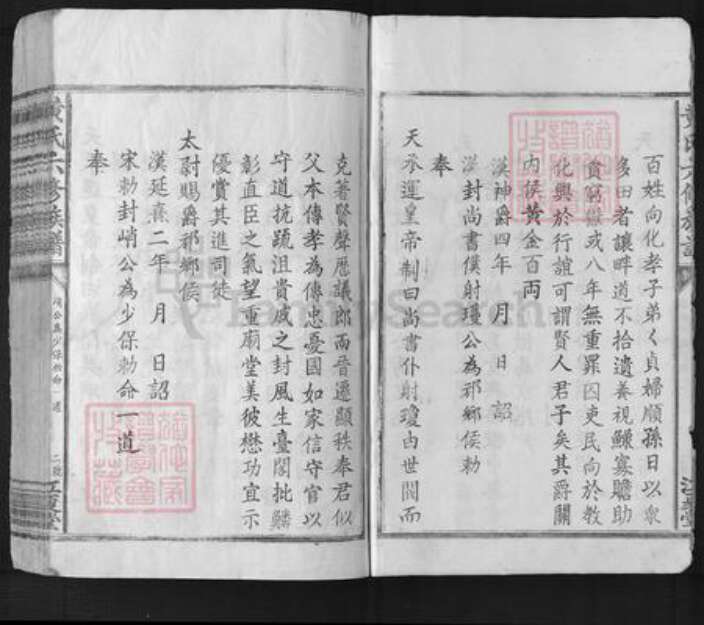 百姓向化孝子弟弟貞婦順孫日以衆
多田者讓畔道不拾遺養視鰥寡贍助
貧窮獄或八年無重罪囚吏民向於教
化興於行誼可謂賢人君子矣其爵關
內侯黃金百両
漢神爵四年 月 日 詔
漢封尚書僕射瓊公為祁鄉侯勅
奉
天承運皇帝制曰尚書仆射瓊由世閥而
克著賢聲歷議郎而晉遷顯秩奉君似
父本傳孝為傳忠憂國如家信守官以
守道抗疏沮貴戚之封風生臺閣批鱗
彰直臣之氣望重廟堂美彼懋功宜示
優賞其進司徒
太尉賜爵祁鄉侯
漢延熹二年 月 日詔
宋勅封峭公為少保勅命一道
奉
黃氏六修族譜
江夏堂
FamilySearch